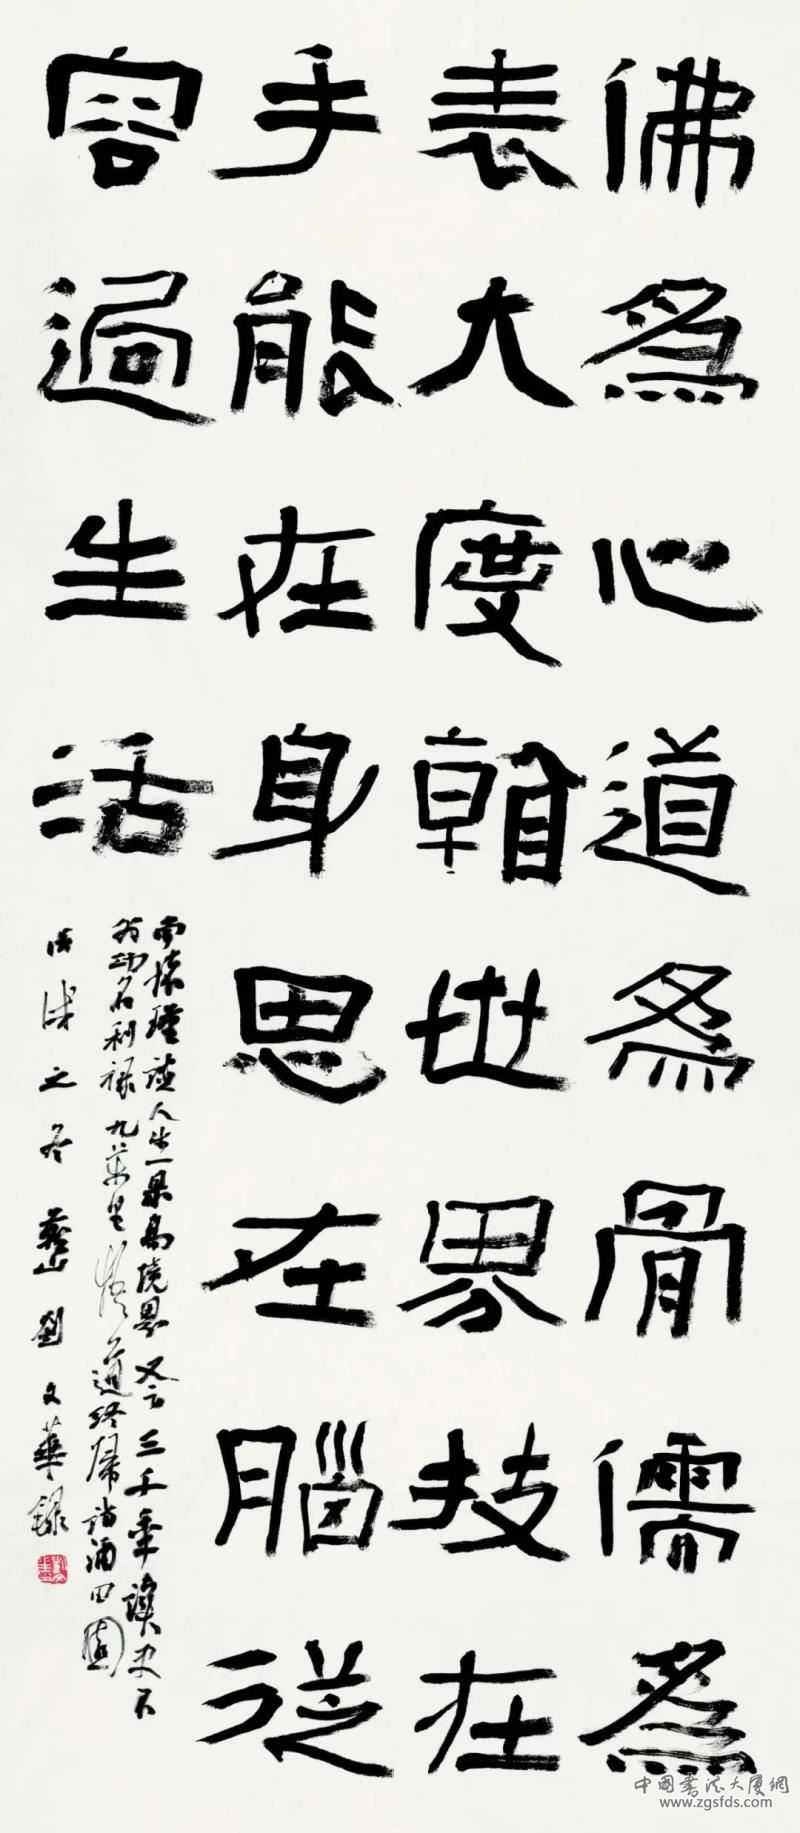 佛為心道為骨儒為
表大度看世界技在
手能在身思在腦從
容過生活
南懷瑾談人生之最高境界又言三千年讀史不
外功名利祿九萬里悟道終歸詩酒田園
戊戌之冬燕山劉文華錄
中國書法大厦網
www.zgsfds.com